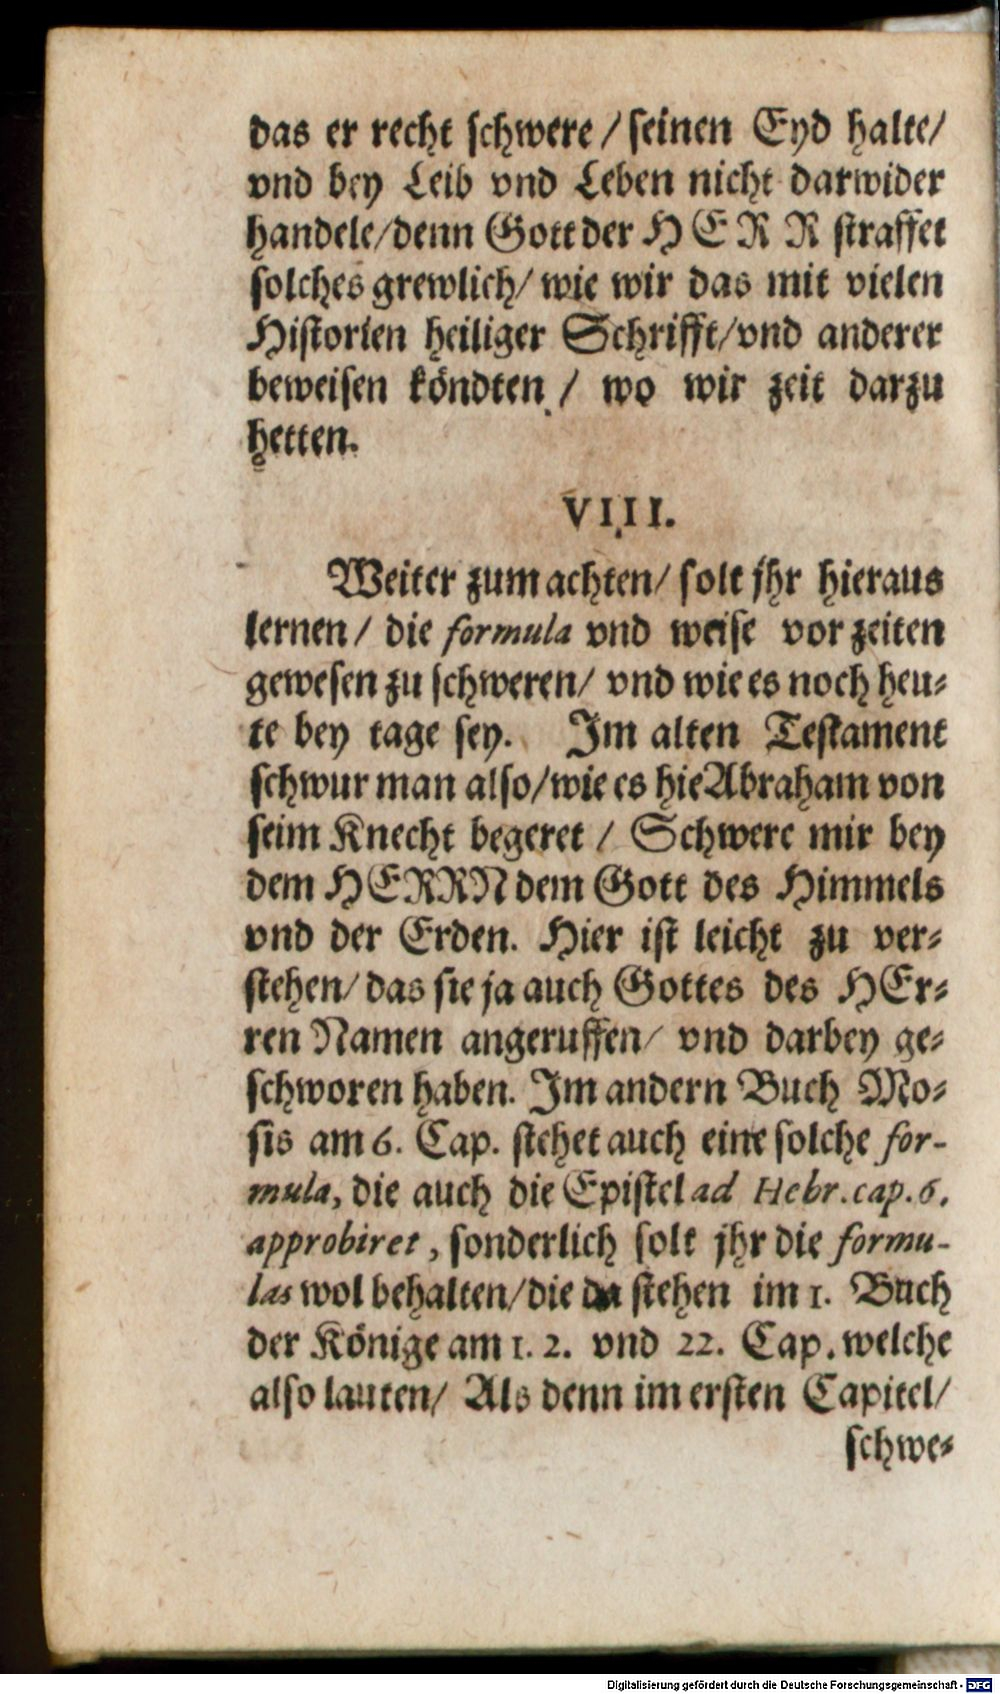 das er recht schwere / seinen Eyd halte/
vnd bey Leib vnd Leben nicht darwider
handele/denn Gott der HERR straffet
solches grewlich/ wie wir das mit vielen
Historien heiliger Schrifft/vnd anderer
beweisen köndten / wo wir zeit darzu
hetten.
VIII.
Weiter zum achten/ solt jhr hieraus
lernen/ die formula vnd weise vor zeiten
gewesen zu schweren/ vnd wie es noch heu-
te bey tage sey. Im alten Testament
schwur man also/wie es hie Abraham von
seim Knecht begeret / Schwere mir bey
dem HERRN dem Gott des Himmels
vnd der Erden. Hier ist leicht zu ver-
stehen/ das sie ja auch Gottes des HEr-
ren Namen angeruffen/ vnd darbey ge-
schworen haben. Im andern Buch Mo-
sis am 6. Cap. stehet auch eine solche for-
mula, die auch die Epistel ad Hebr. cap. 6.
approbiret, sonderlich solt jhr die formu-
las wol behalten/die da stehen im 1. Buch
der Könige am 1. 2. vnd 22. Cap. welche
also lauten/ Als denn im ersten Capitel/
schwe-
Digitalisierung gefördert durch die Deutsche Forschungsgemeinschaft - DFG